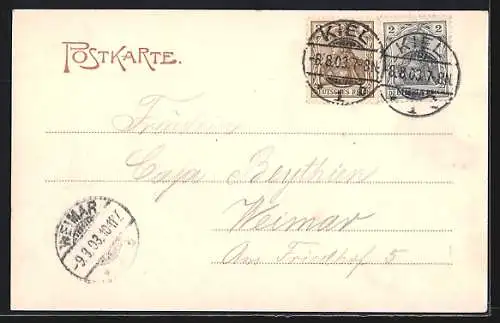 POSTKARTE.
3
DEUTSCHES REICH
2
DEUTSCHES REICH
KIEL
-8.8.03.7-8N.
1
KIEL
-8.8.03.7-8N.
1
Fräulein
Weimar
Am Friedhof 5
WEIMAR
-9.8.03.10-11V.